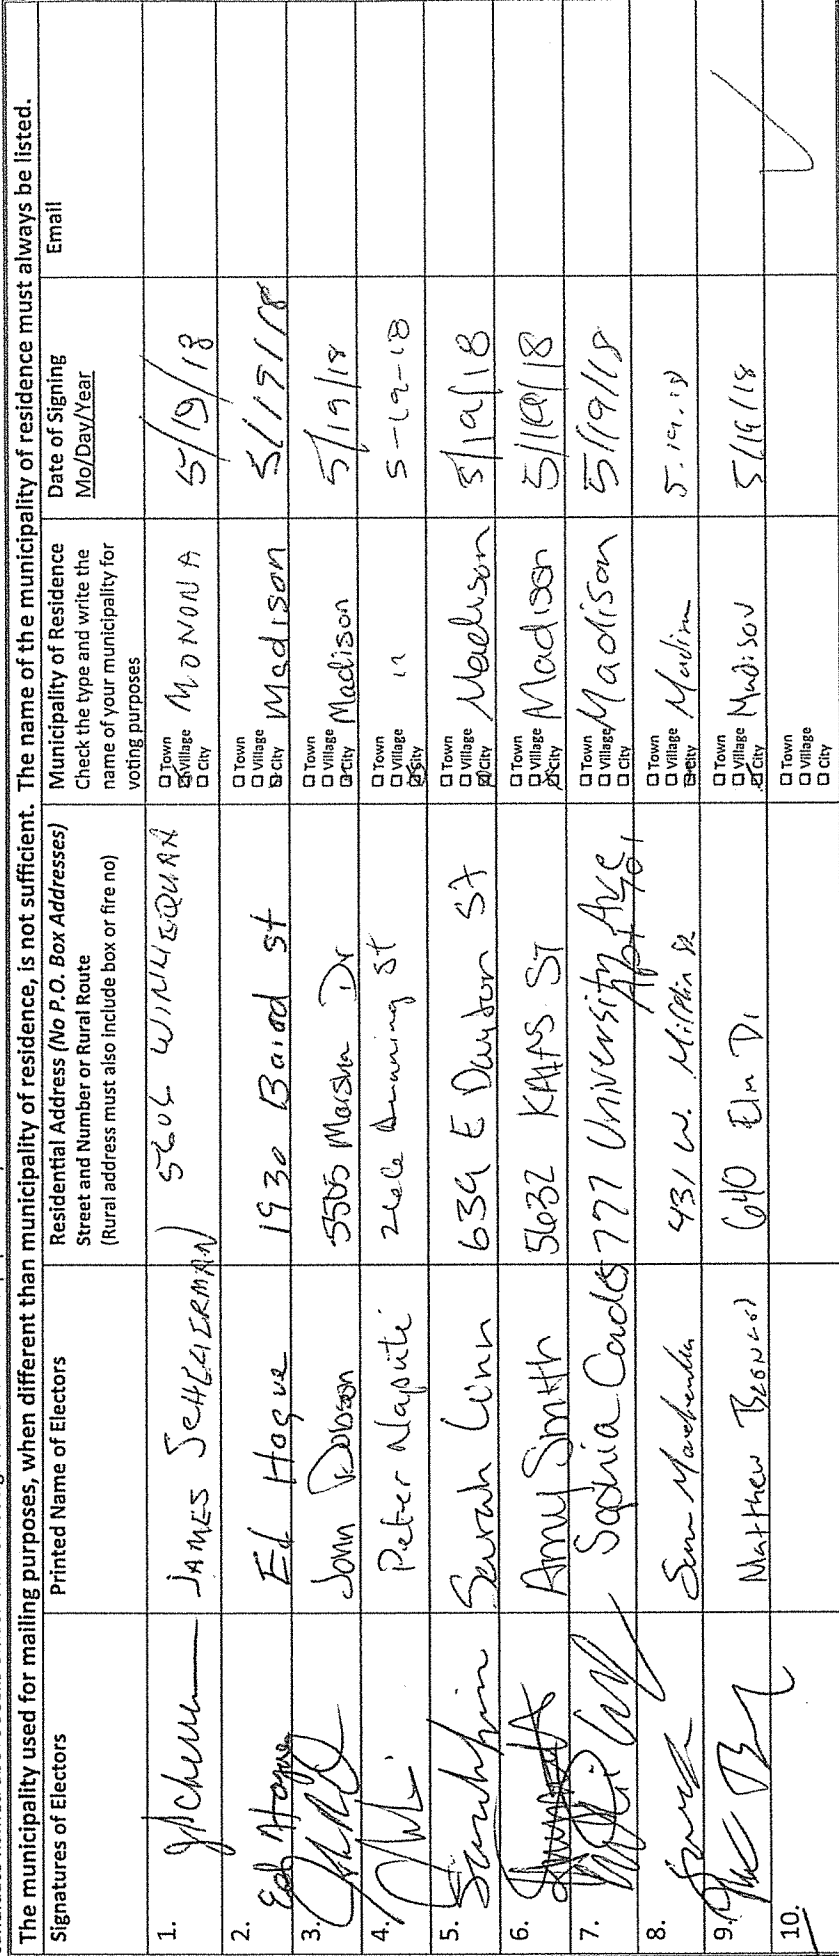 The municipality used for mailing purposes, when different than municipality of residence, is not sufficient. The name of the municipality of residence must always be listed.
Signatures of Electors
Printed Name of Electors
Residential Address (No P.O. Box Addresses)
Street and Number or Rural Route
(Rural address must also include box or fire no)
Municipality of Residence
Check the type and write the
name of your municipality for
voting purposes
Date of Signing
Mo/Day/Year
Email
1.
JAMES
□ Town
□ Village
□ City
MONONA
5/19/18
2.
Ed Hogue
Ed Hogue
1930 Baird St
□ Town
□ Village
□ City
Madison
5/19/18
3.
John Dobson
5505 Marsha Dr
□ Town
□ Village
□ City
Madison
5/19/18
4.
Peter Napute
St
□ Town
□ Village
□ City
"
5-19-18
5.
Sarah Linn
639 E Dayton St
□ Town
□ Village
□ City
Madison
5/19/18
6.
Amy Smith
5632 St
□ Town
□ Village
□ City
Madison
5/19/18
7.
Sophia
777 University Ave
Apt 701
□ Town
□ Village
□ City
Madison
5/19/18
8.
431 W. Mifflin
□ Town
□ Village
□ City
Madison
5.19.18
9.
Matthew
640 Elm Dr
□ Town
□ Village
□ City
Madison
5/19/18
10.
□ Town
□ Village
□ City